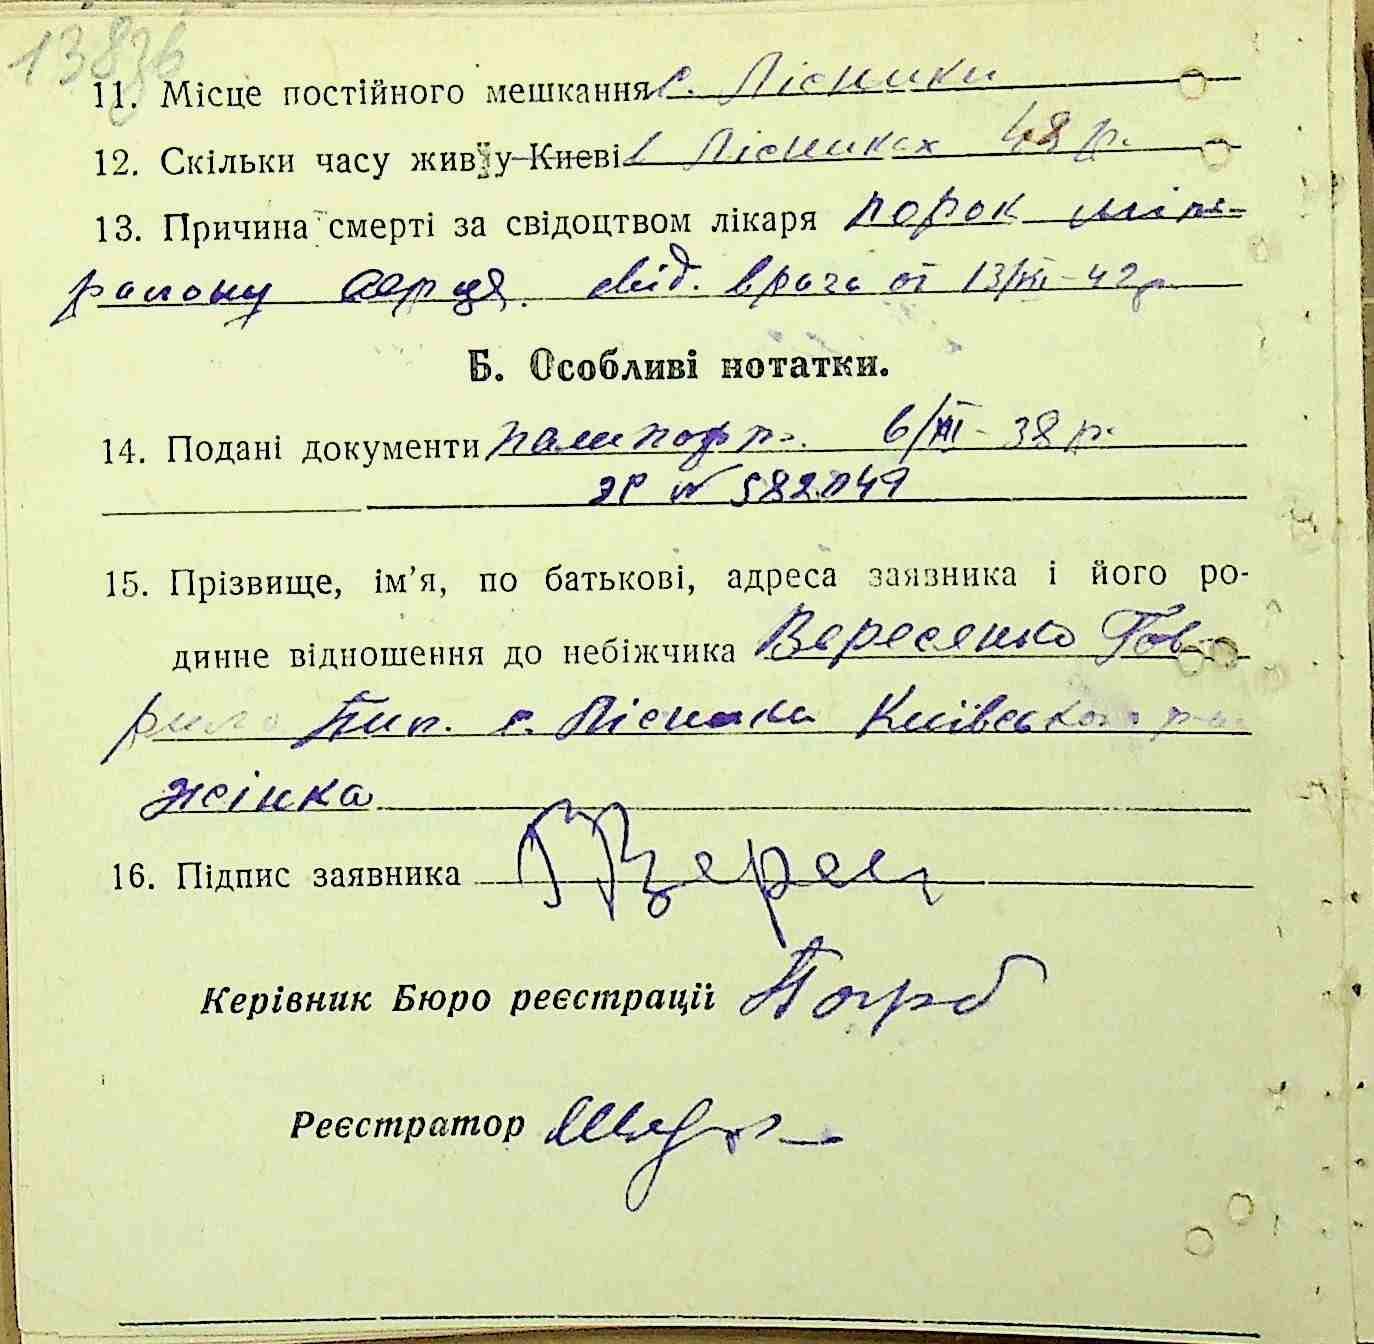 1383в
11. Місце постійного мешкання с. Лісники
12. Скільки часу жив у Києві в Лісниках 48 р.
13. Причина смерті за свідоцтвом лікаря порок міт-
рального серця. свід. врача от 13/XII-42 р.
Б. Особливі нотатки.
14. Подані документи пашпорт. 6/XII-38 р.
№ 582047
15. Прізвище, ім’я, по батькові, адреса заявника і його ро-
динне відношення до небіжчика Вересенко Гав-
рило Пип. с. Лісники Київського р-ну
жінка
16. Підпис заявника
Керівник Бюро реєстрації
Реєстратор